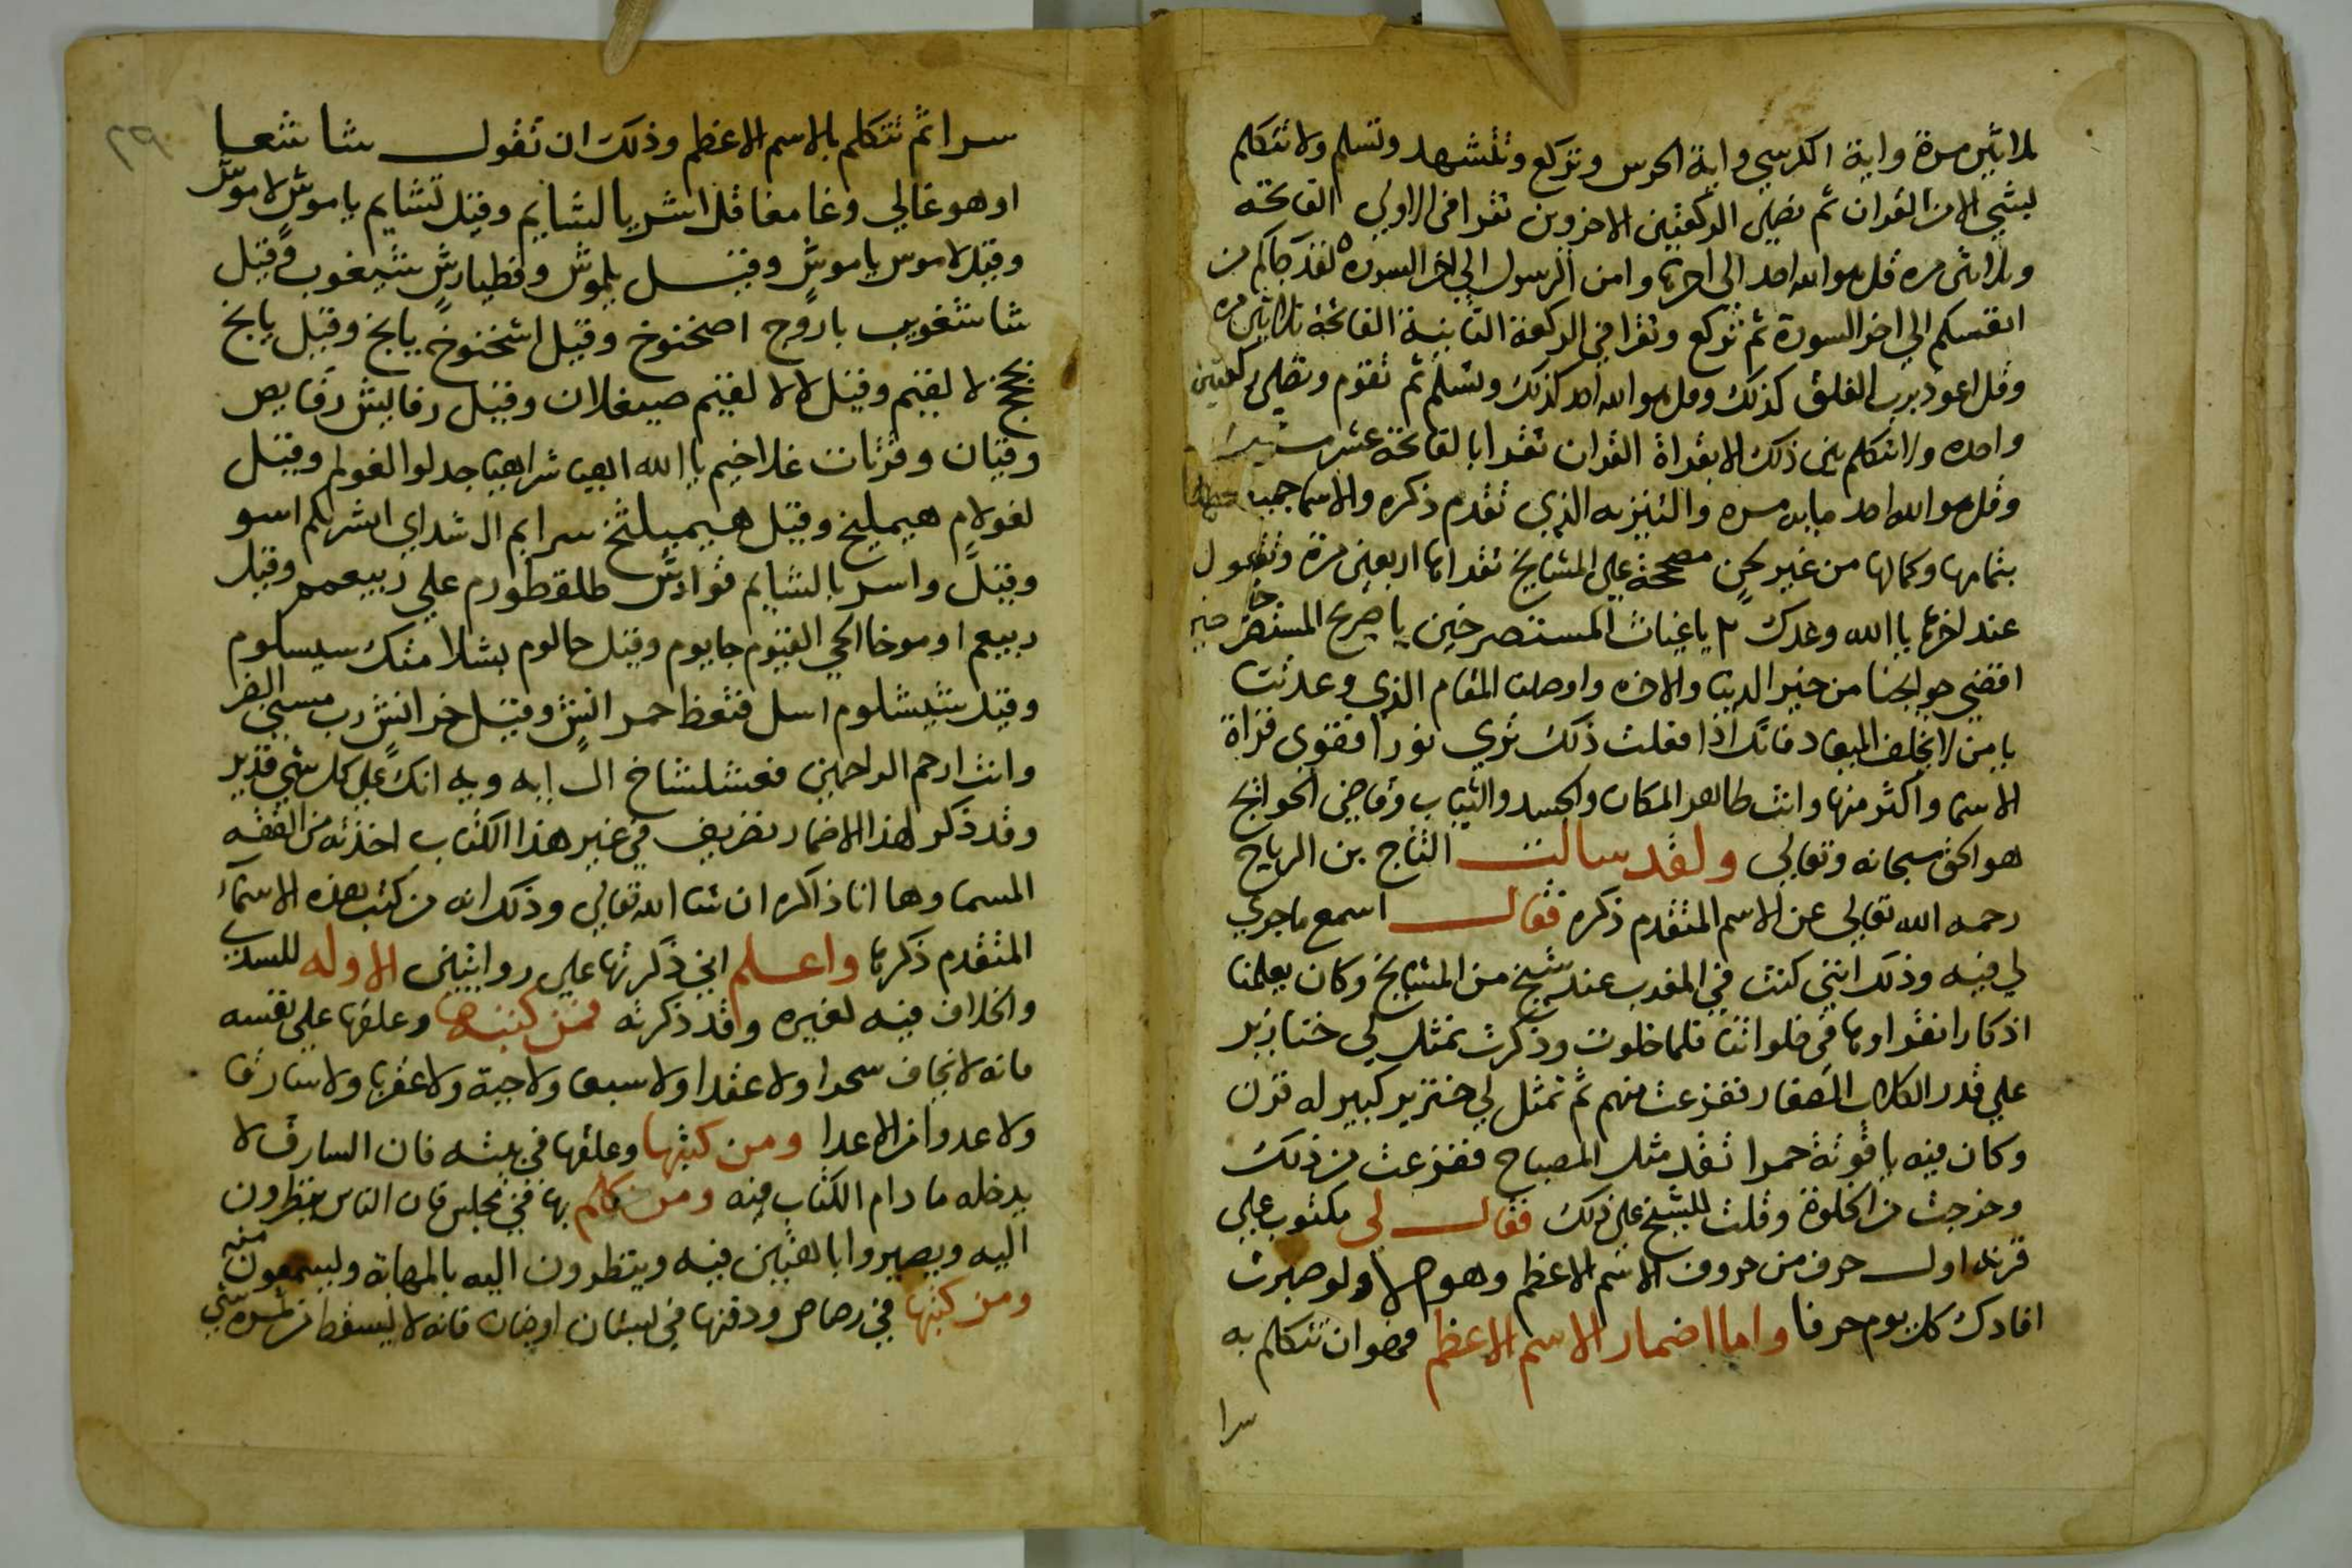 ثلاثين مرة واية الكرسي واية الحرس وتركع وتتشهد وتسلم ولا تتكلم
بشي الا من القران ثم تصلي الركعتين الاخروين تقرا في الاولي الفاتحة
وثلاثين مره قل هو الله احد الى اخرها وامن الرسول الي اخر السورة لقد جاكم من
انفسكم الي اخر السورة ثم تركع وتقرا في الركعة الثانية الفاتحة ثلاثين مره
وقل اعوذ برب الفلق كذلك وقل هو الله احد كذلك وتسلم ثم تقوم وتصلى ركعتين
واحده ولا تتكلم بين ذلك الا بقراة القران تقرا بالفاتحة عشر
وقل هو الله احد مايه مره والتنزيه الذي تقدم ذكره والاسما
بتمامها وكمالها من غير لحن مصححة علي المشايخ تقراها اربعين مرة وتقول
عند اخرهم يا الله وعدك ٢ يا غياث المستصرخين يا صريخ
اقضي حوايجنا من خير الدنيا والاخره واوصلنا المقام الذي وعدتنا
يا من لا يخلف الميعاد فانك اذا فعلت ذلك تري نورا فقوي قراة
الاسما واكثر منها وانت طاهر المكان والجسد والثياب وقاضي الحوايج
هو الحق سبحانه وتعالي ولقد سالت التاج بن الرياح
رحمه الله تعالي عن الاسم المتقدم ذكره فقال اسمع ما جري
لي فيه وذلك انني كنت في المغرب عند شيخ من المشايخ وكان يعلمنا
اذكارا نقراوها في خلواتنا فلما خلوت وذكرت تمثل لي خنازير
علي قدر الكلاب الصغار ففزعت منهم ثم تمثل لي خنزير كبير له قرن
وكان فيه ياقوتة حمرا تقد مثل المصباح ففزعت من ذلك
وخرجت من الخلوة وقلت للشيخ علي ذلك فقال لى مكتوب علي
قرنه اول حرف من حروف الاسم الاعظم وهو ولو صبرت
افادك كل يوم حرفا واما اضمار الاسم الاعظم فهو ان تتكلم به
سرا
٢٩
سرا ثم تتكلم بالاسم الاعظم وذلك ان تقول شا شعا
او هو غالي وغا مغا قلا اشر يا لشايم وقيل تشايم ياموش لاموش
وقيل لاموس ياموش وقيل يلموش وفطيارش شيغوب وقيل
شا شغويب باروخ اصخنوخ وقيل اشخنوخ يايخ وقيل يايخ
لا لفيم وقيل لالا لفيم صيغلان وقيل رقاليش رقايص
وقيان وقرنات غلاخيم يا الله اهيا شراهيا جدلوا لغولم وقيل
لغولام هيمليخ وقيل هيميلثخ سرايم ال شداي اشر لكم اسو
وقيل واسر يا لشايم قوادش طلقطورم علي ربيعمم وقيل
ربيعم او موخا الحي القيوم جايوم وقيل حالوم بشلا متك سيسلوم
وقيل شيشلوم اسل فتعظ حمرانش وقيل خرانش رب مسني الضر
وانت ارحم الراحمين فعشلشاخ ال ايه ويه انك علي كل شي قدير
وقد ذكر لهذا الاضمار تصريف في غير هذا الكتاب اخذته من الفقه
المسما وها انا ذاكره ان شا الله تعالي وذلك انه من كتب هذه الاسماء
المتقدم ذكرها واعلم اني ذكرتها علي روايتين الاوله للسبتي
والخلاف فيه لغيره وقد ذكرته فمن كتبها وعلقها علي نفسه
فانه لا يخاف سحرا ولا عقدا ولا سبعا ولا حية ولا عقربا ولا سارقا
ولا عدوا من الاعدا ومن كتبها وعلقها في بيته فان السارق لا
يدخله ما دام الكتاب فيه ومن تكلم بها في مجلس فان الناس ينظرون
اليه ويصيروا باهتين فيه وينظرون اليه بالمهابة ويسمعون منه
ومن كتبها في رصاص ودفنها في بستان او جنان فانه لا يسقط من ثمره شي